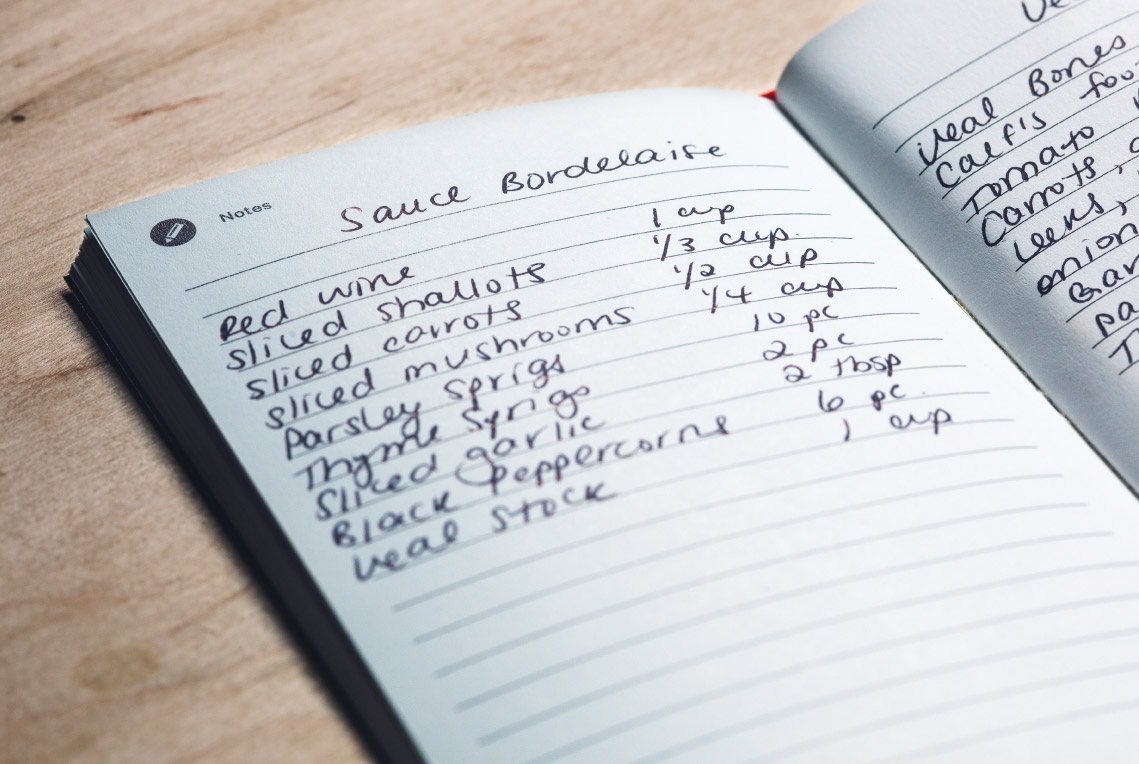 Notes
Sauce Bordelaise
Red wine 1 cup
sliced shallots 1/3 cup.
sliced carrots 1/2 cup
sliced mushrooms 1/4 cup
Parsley sprigs 10 pc
Thyme sprigs 2 pc
Sliced garlic 2 tbsp
Black Peppercorns 6 pc.
Veal Stock 1 cup
Veal Bones
Calf's
Tomato
Carrots,
Leeks,
onion